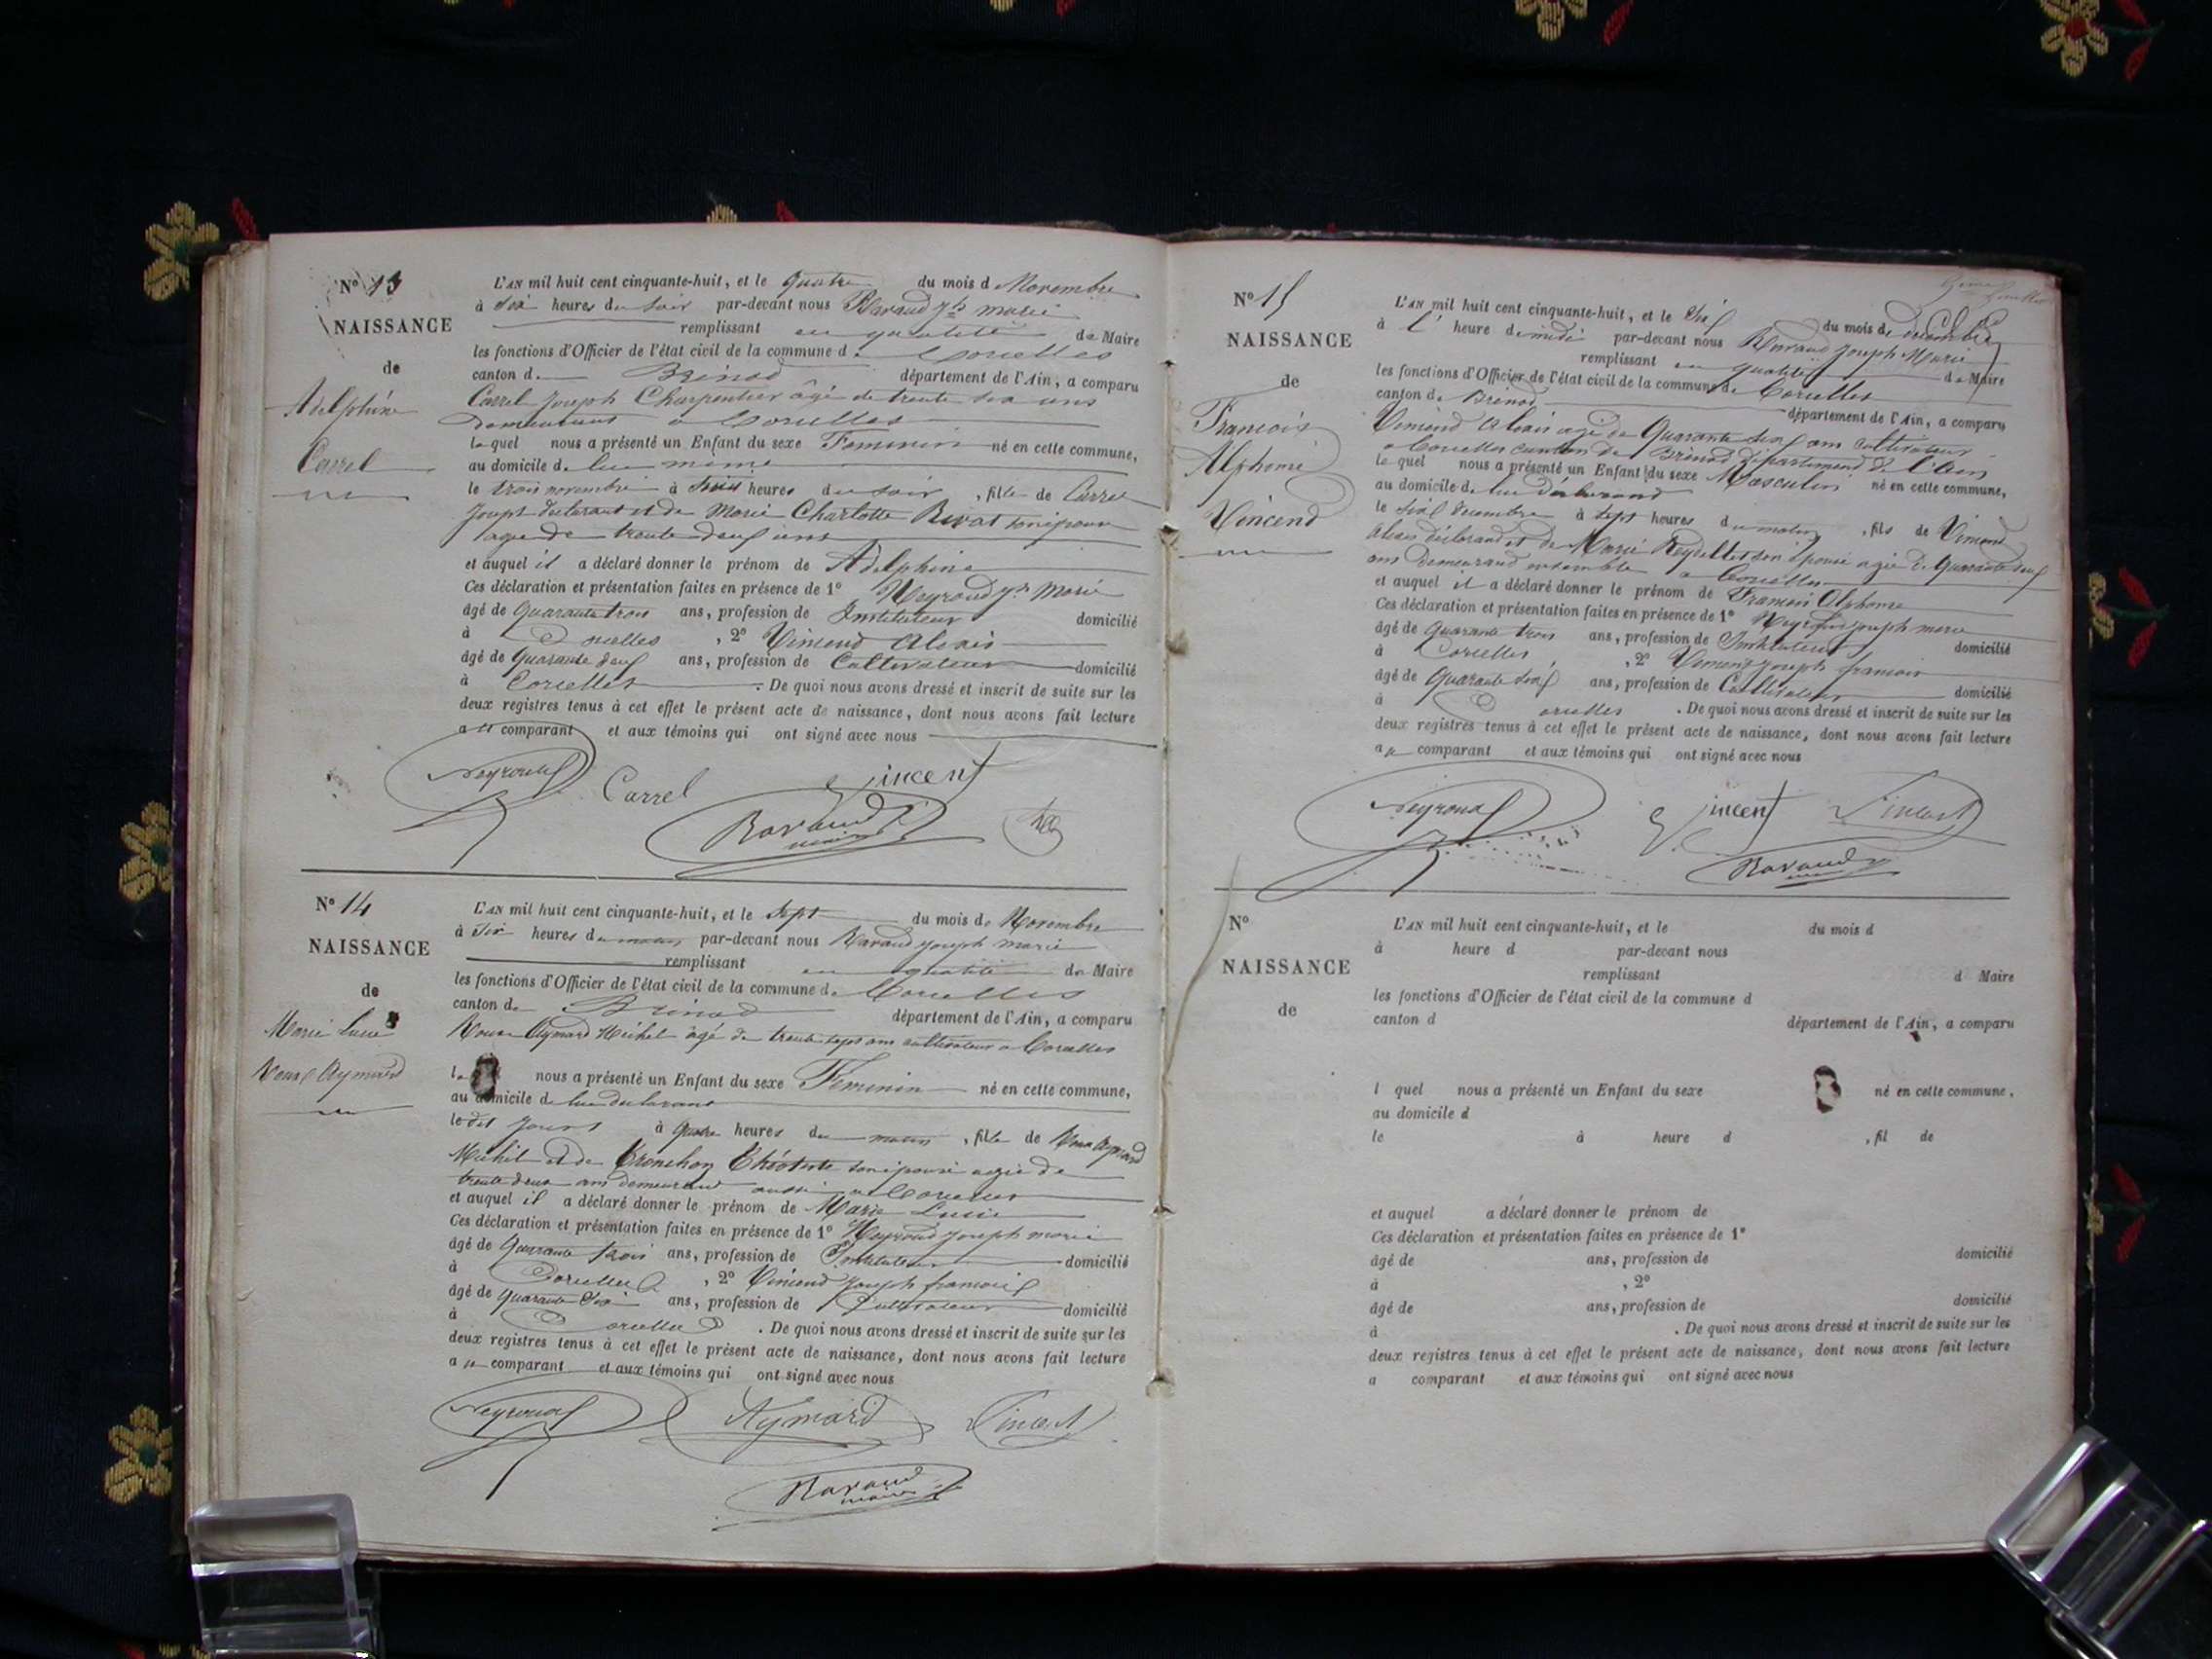 N° 13
NAISSANCE
de
Adelphine
Carrel
L'AN mil huit cent cinquante-huit, et le quatre du mois d Novembre
à six heures du soir par-devant nous Ravaud jh marie
remplissant en qualité de Maire
les fonctions d'Officier de l'état civil de la commune de Corcelles
canton de Brénod département de l'Ain, a comparu
Carrel Joseph Charpentier âgé de trente six ans
demeurant a Corcelles
lequel nous a présenté un Enfant du sexe Feminin né en cette commune,
au domicile de lui meme
le trois novembre à heures du soir, fille de Carrel
Joseph declarant et de Marie Charlotte Bivat son épouse
agée de trente deux ans
et auquel il a déclaré donner le prénom de Adelphine
Ces déclaration et présentation faites en présence de 1° Neyroud jh Marie
âgé de Quarante trois ans, profession de Instituteur domicilié
à Corcelles, 2° Vincend Alexis
âgé de Quarante deux ans, profession de Cultivateur domicilié
à Corcelles. De quoi nous avons dressé et inscrit de suite sur les
deux registres tenus à cet effet le présent acte de naissance, dont nous avons fait lecture
au comparant et aux témoins qui ont signé avec nous
Neyroud Carrel Vincent
Ravaud maire
N° 14
NAISSANCE
de
Marie Lucie
Roux Aymard
L'AN mil huit cent cinquante-huit, et le sept du mois de Novembre
à six heures du matin par-devant nous Ravaud Joseph marie
remplissant en qualité de Maire
les fonctions d'Officier de l'état civil de la commune de Corcelles
canton de Brénod département de l'Ain, a comparu
Roux Aymard Michel âgé de trente sept ans cultivateur a Corcelles
le nous a présenté un Enfant du sexe Feminin né en cette commune,
au domicile de lui declarant
le dit jour à quatre heures du matin, fille de Roux Aymard
Michel et de Tronchon Théotiste son épouse agée de
trente deux ans demeurant aussi a Corcelles
et auquel il a déclaré donner le prénom de Marie Lucie
Ces déclaration et présentation faites en présence de 1° Neyroud Joseph marie
âgé de Quarante trois ans, profession de Instituteur domicilié
à Corcelles, 2° Vincend Joseph francois
âgé de quarante six ans, profession de Cultivateur domicilié
à Corcelles. De quoi nous avons dressé et inscrit de suite sur les
deux registres tenus à cet effet le présent acte de naissance, dont nous avons fait lecture
au comparant et aux témoins qui ont signé avec nous
Neyroud Aymard Vincent
Ravaud maire
N° 15
NAISSANCE
de
Francois
Alphonse
Vincend
L'AN mil huit cent cinquante-huit, et le Six du mois de décembre
à l' heure de midi par-devant nous Ravaud Joseph Marie
remplissant en qualité de Maire
les fonctions d'Officier de l'état civil de la commune de Corcelles
canton de Brénod département de l'Ain, a comparu
Vincend Alexis agé de Quarante deux ans cultivateur
a Corcelles canton de Brénod département de l'Ain
lequel nous a présenté un Enfant du sexe Masculin né en cette commune,
au domicile de lui déclarand
le six decembre à sept heures du matin, fils de Vincend
Alexis déclarand et de Marie Reydellet son épouse agée de Quarante deux
ans demeurand ensemble a Corcelles
et auquel il a déclaré donner le prénom de Francois Alphonse
Ces déclaration et présentation faites en présence de 1° Neyroud joseph marie
âgé de quarante trois ans, profession de Instituteur domicilié
à Corcelles, 2° Vincend Joseph francois
âgé de Quarante six ans, profession de Cultivateur domicilié
à Corcelles. De quoi nous avons dressé et inscrit de suite sur les
deux registres tenus à cet effet le présent acte de naissance, dont nous avons fait lecture
au comparant et aux témoins qui ont signé avec nous
Neyroud Vincent Vincent
Ravaud
N°
NAISSANCE
de
L'AN mil huit cent cinquante-huit, et le du mois d
à heure d par-devant nous
remplissant d Maire
les fonctions d'Officier de l'état civil de la commune d
canton d département de l'Ain, a comparu
l quel nous a présenté un Enfant du sexe né en cette commune,
au domicile d
le à heure d , fil de
et auquel a déclaré donner le prénom de
Ces déclaration et présentation faites en présence de 1°
âgé de ans, profession de domicilié
à , 2°
âgé de ans, profession de domicilié
à . De quoi nous avons dressé et inscrit de suite sur les
deux registres tenus à cet effet le présent acte de naissance, dont nous avons fait lecture
a comparant et aux témoins qui ont signé avec nous